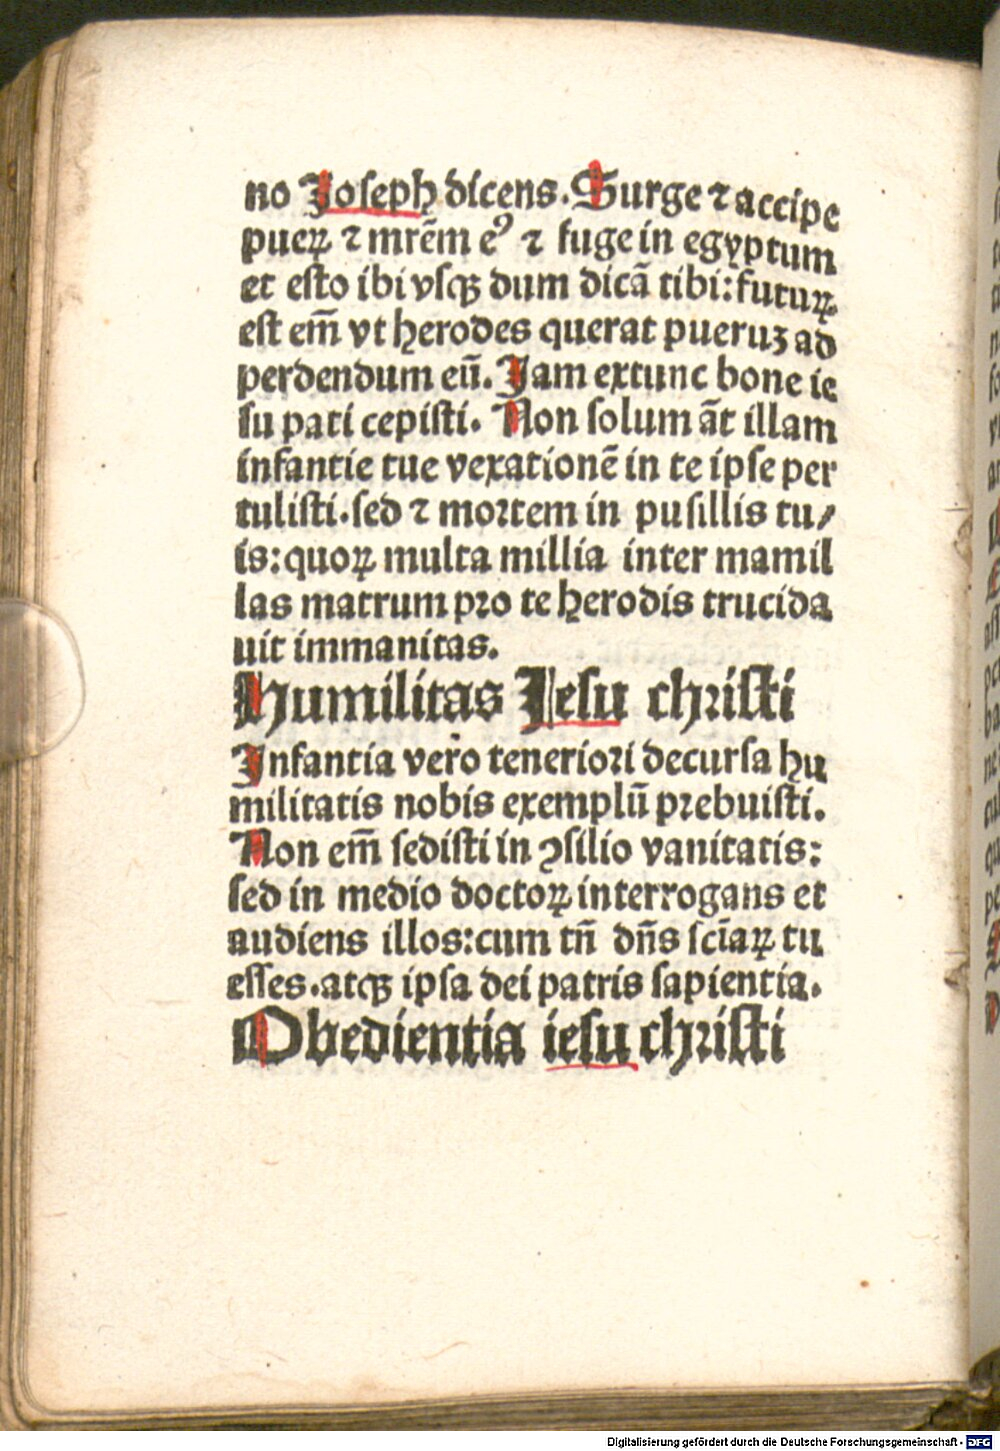 no Joseph dicens. Surge ⁊ accipe
pueꝝ ⁊ mr̄em eꝰ ⁊ fuge in egyptum
et esto ibi vsqꝫ dum dicā tibi: futuꝝ
est em̄ vt herodes querat pueruꝫ ad
perdendum eū. Jam extunc bone ie
su pati cepisti. Non solum āt illam
infantie tue vexationē in te ipse per
tulisti. sed ⁊ mortem in pusillis tu/
is: quoꝝ multa millia inter mamil
las matrum pro te herodis trucida
uit immanitas.
Humilitas Jesu christi
Infantia vero teneriori decursa hu
militatis nobis exemplū prebuisti.
Non em̄ sedisti in ꝯsilio vanitatis:
sed in medio doctoꝝ interrogans et
audiens illos: cum tn̄ dn̄s sciāꝝ tu
esses. atqꝫ ipsa dei patris sapientia.
Obedientia iesu christi
Digitalisierung gefördert durch die Deutsche Forschungsgemeinschaft - DFG